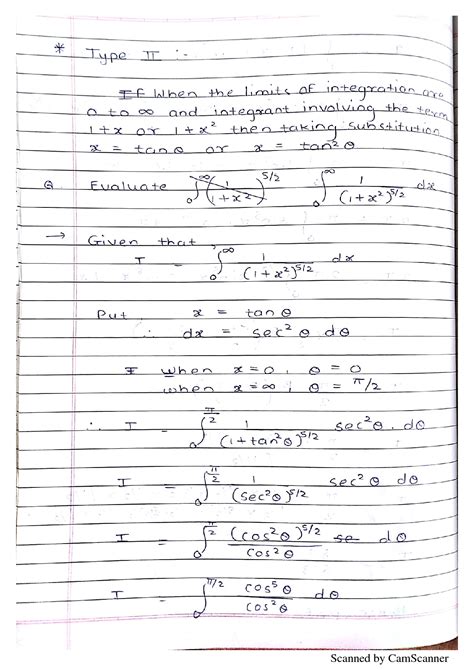 * Type II :-
If When the limits of integration are
0 to ∞ and integrant involving the term
1+x or 1+x² then taking substitution
x = tanθ or x = tan²θ
Q Evaluate ∫₀^∞ (1/(1+x²))^5/2 ∫₀^∞ 1/(1+x²)^5/2 dx
→ Given that,
I = ∫₀^∞ 1/(1+x²)^5/2 dx
Put x = tanθ
∴ dx = sec²θ dθ
When x=0, θ = 0
when x=∞, θ = π/2
∴ I = ∫₀^π/2 1/(1+tan²θ)^5/2 sec²θ. dθ
I = ∫₀^π/2 1/(sec²θ)^5/2 sec²θ dθ
I = ∫₀^π/2 (cos²θ)^5/2/cos²θ se dθ
I = ∫₀^π/2 cos⁵θ/cos²θ dθ
Scanned by CamScanner